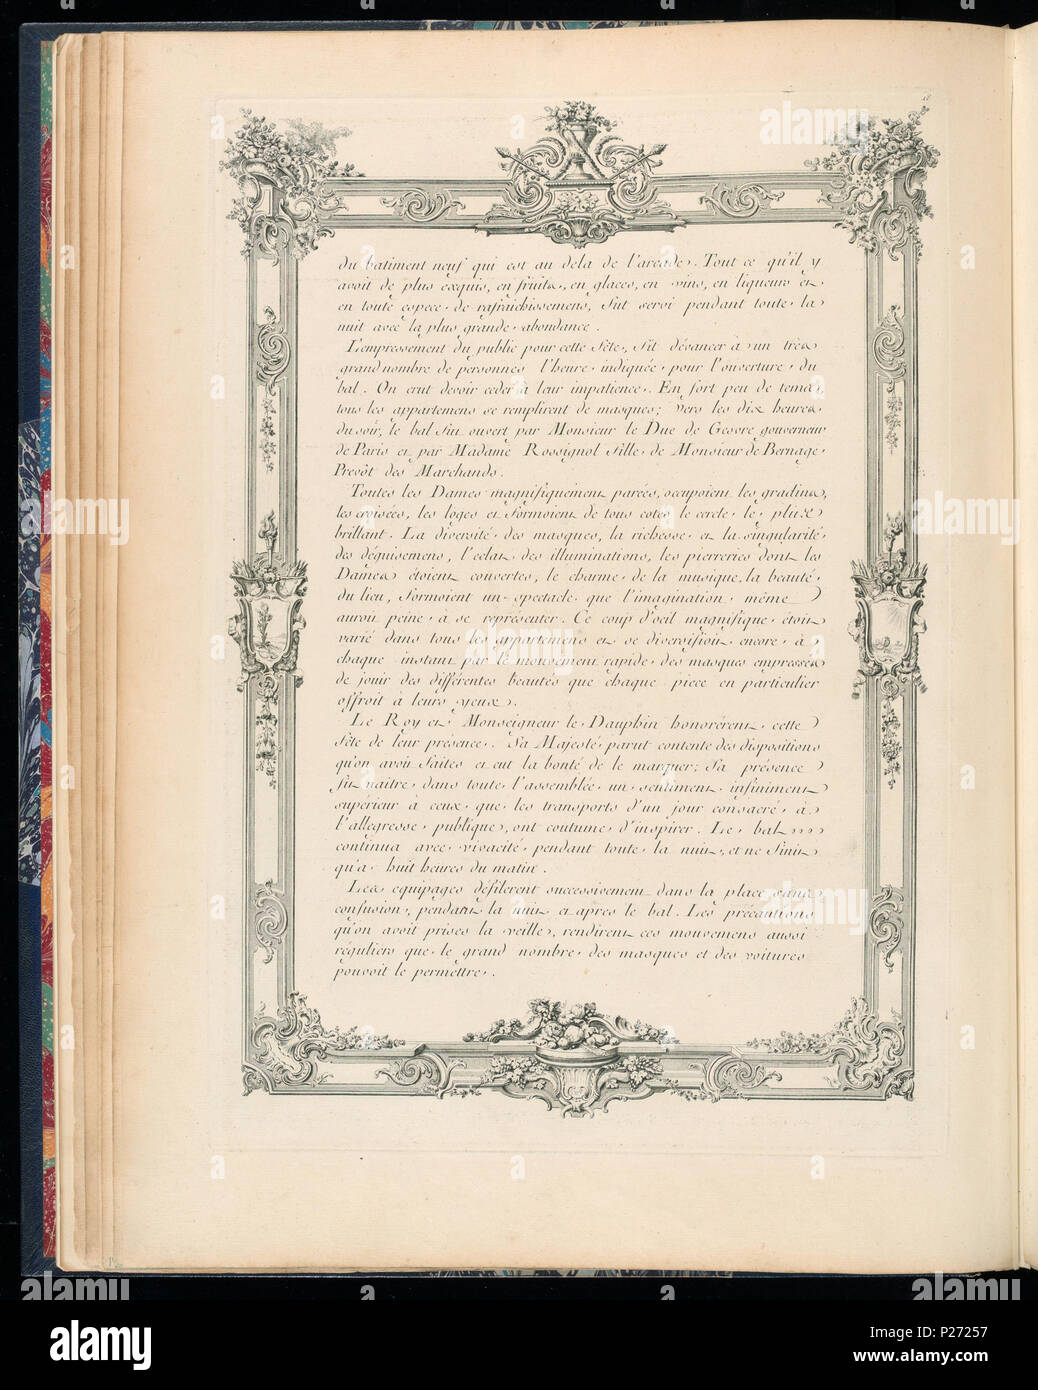 18
du batiment neuf qui est au dela de l'arcade. Tout ce qu'il y
avoit de plus exquis, en fruits, en glaces, en vins, en liqueurs et
en toute espece de rafraichissemens, fut servi pendant toute la
nuit avec la plus grande abondance.
L'empressement du public pour cette fête, fit devancer à un très
grand nombre de personnes l'heure indiquée pour l'ouverture du
bal. On crut devoir ceder à leur impatience. En fort peu de temps,
tous les appartemens se remplirent de masques; vers les dix heures
du soir, le bal fut ouvert par Monsieur le Duc de Gesvre gouverneur
de Paris et par Madame Rossignol fille de Monsieur de Bernage
Prevôt des Marchands.
Toutes les Dames magnifiquement parées, occupoient les gradins,
les croisées, les loges et formoient de tous cotés le cercle le plus
brillant. La diversité des masques, la richesse et la singularité
des déguisemens, l'eclat des illuminations, les pierreries dont les
Dames étoient couvertes, le charme de la musique, la beauté
du lieu, formoient un spectacle que l'imagination même
auroit peine à se représenter. Ce coup d'oeil magnifique étoit
varié dans tous les appartemens et se diversifioit encore à
chaque instant par le mouvement rapide des masques empressés
de jouir des différentes beautés que chaque piece en particulier
offroit à leurs yeux.
Le Roy et Monseigneur le Dauphin honorérent cette
fête de leur présence. Sa Majesté parut contente des dispositions
qu'on avoit faites et eut la bonté de le marquer; Sa présence
fit naitre dans toute l'assemblée un sentiment infiniment
supérieur à ceux que les transports d'un jour consacré à
l'allegresse publique, ont coutume d'inspirer. Le bal
continua avec vivacité pendant toute la nuit, et ne finit
qu'a huit heures du matin.
Les equipages défilerent successivement dans la place sans
confusion, pendant la nuit et apres le bal. Les précautions
qu'on avoit prises la veille, rendirent ces mouvemens aussi
réguliers que le grand nombre des masques et des voitures
pouvoit le permettre.
alamy
alamy
Image ID: P27257
www.alamy.com